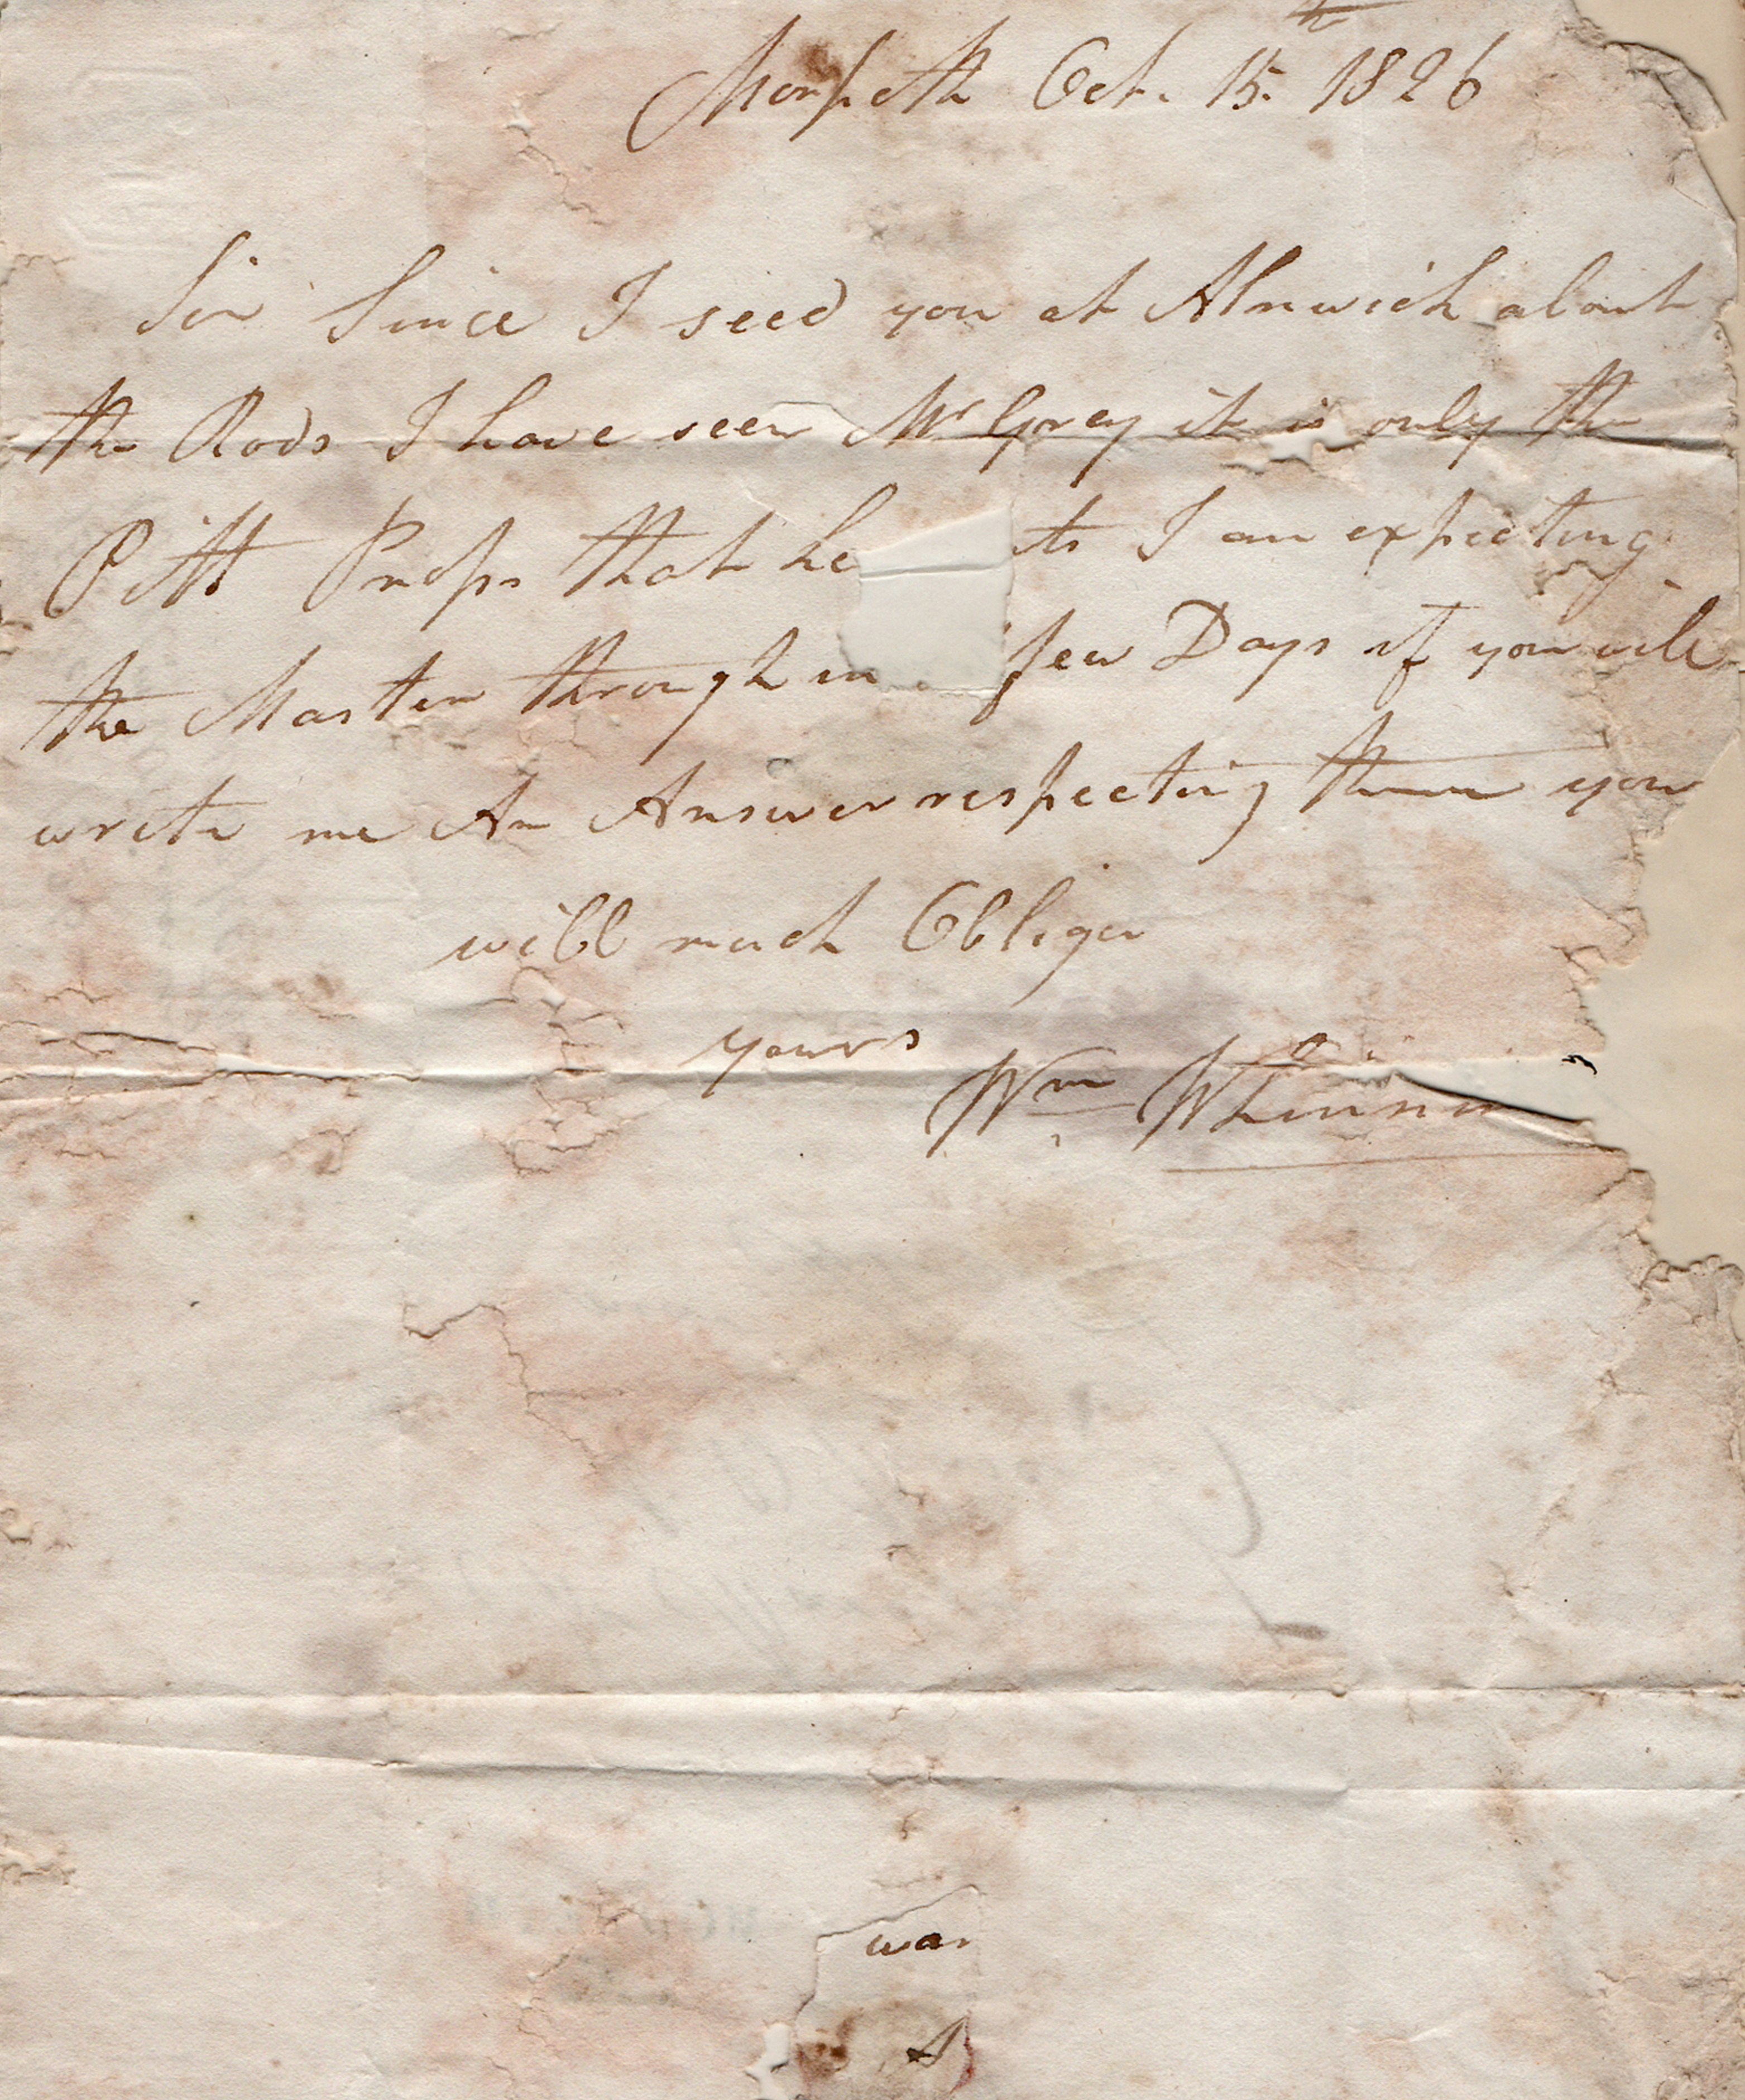 Morpeth Oct. 15th 1826
Sir Since I seed you at Alnwick about
the Rods I have seen Mr Grey it is only the
Pitt Props that he ts I am expecting
the Master through in few Days if you will
write me An Answer respecting them you
will much Oblige
yours
Wm
wan